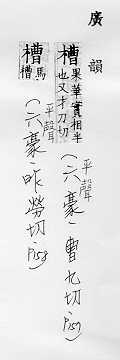 廣韻
槽 果華實相半也又才刀切 平聲(六豪)曹九切 P157
槽 馬槽 平聲(六豪)昨勞切 P158